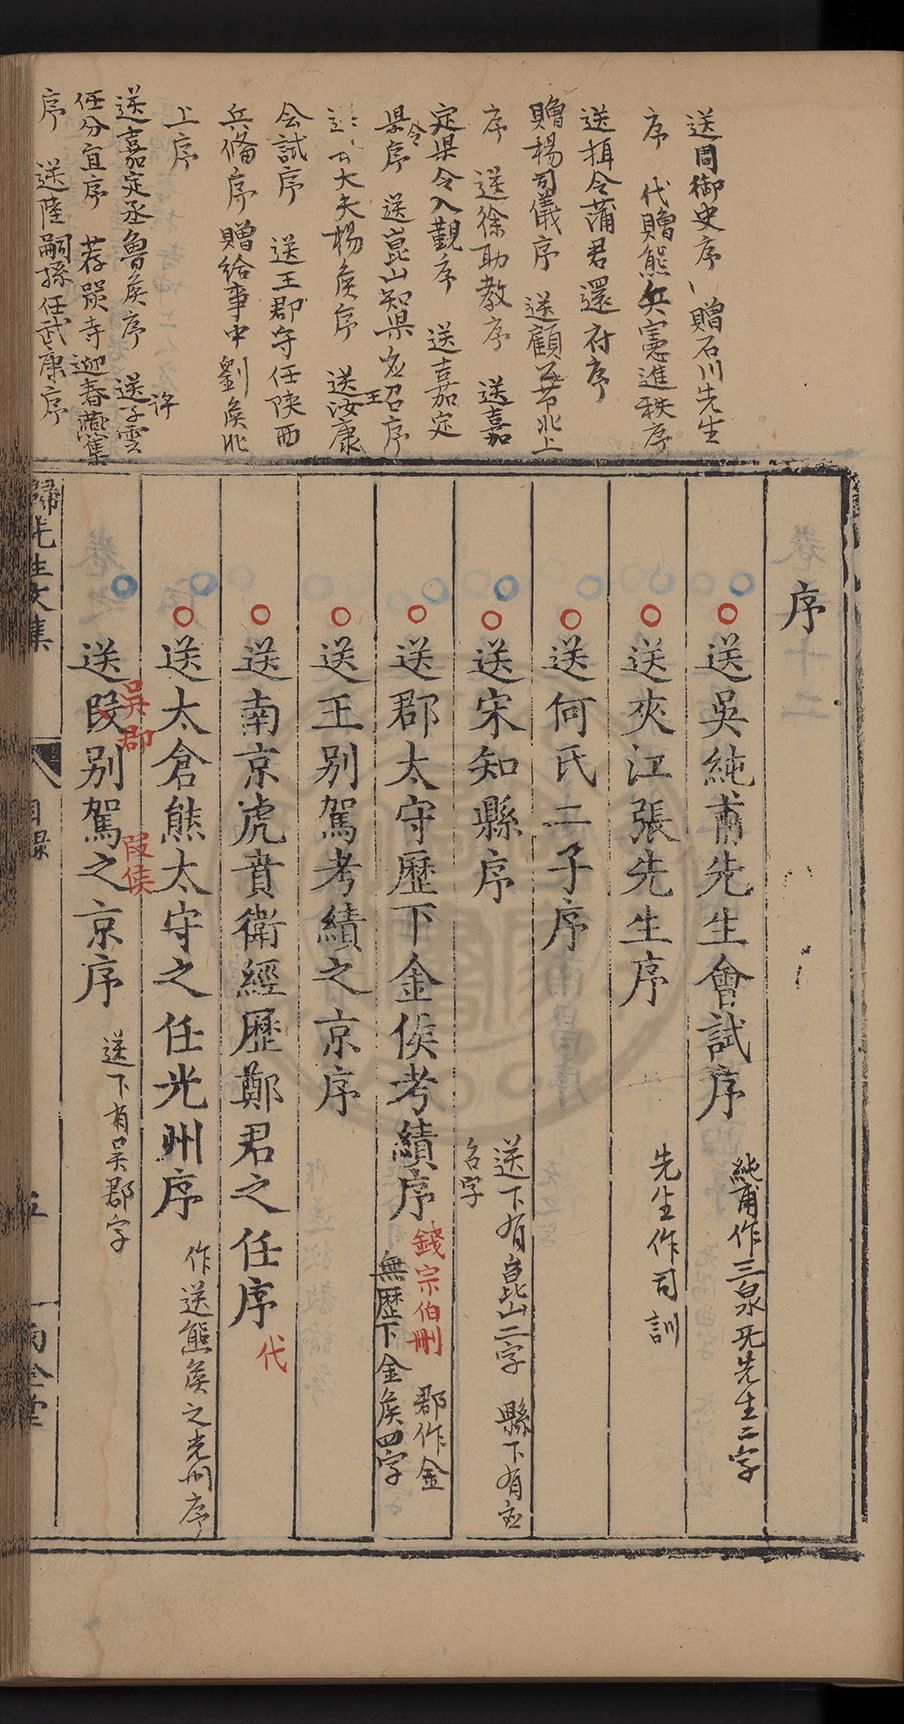 送周御史序 贈石川先生
序 代贈熊兵憲進秩序
送揖令蒲君還府序
贈楊司儀序 送顧 北上
序 送徐助教序 送嘉
定県令入覲序 送嘉定
県令序 送崑山知県 王 召序
大夫楊矦序 送汝康
会試序 送王郡守任陕西
兵僃序 贈給事中劉矦北
上序
送嘉定丞魯矦序 送許子雲
任分宜序 荐嚴寺迎春䜩集
序 送陸嗣孫任武康序
序
送吳純甫先生會試序 純甫作三泉 无先生二字
送夾江張先生序 先生作司訓
送何氏二子序
送宋知縣序 送下有崑山二字 縣下有
名字
送郡太守歷下金侯考績序 錢宗伯刪 郡作金
無歷下金矦四字
送王別駕考績之京序
送南京虎賁衛經歷鄭君之任序 代
送太倉熊太守之任光州序 作送熊矦之光州序
送陵別駕之京序 送下有吴郡字
吳郡
歸先生文集
目錄